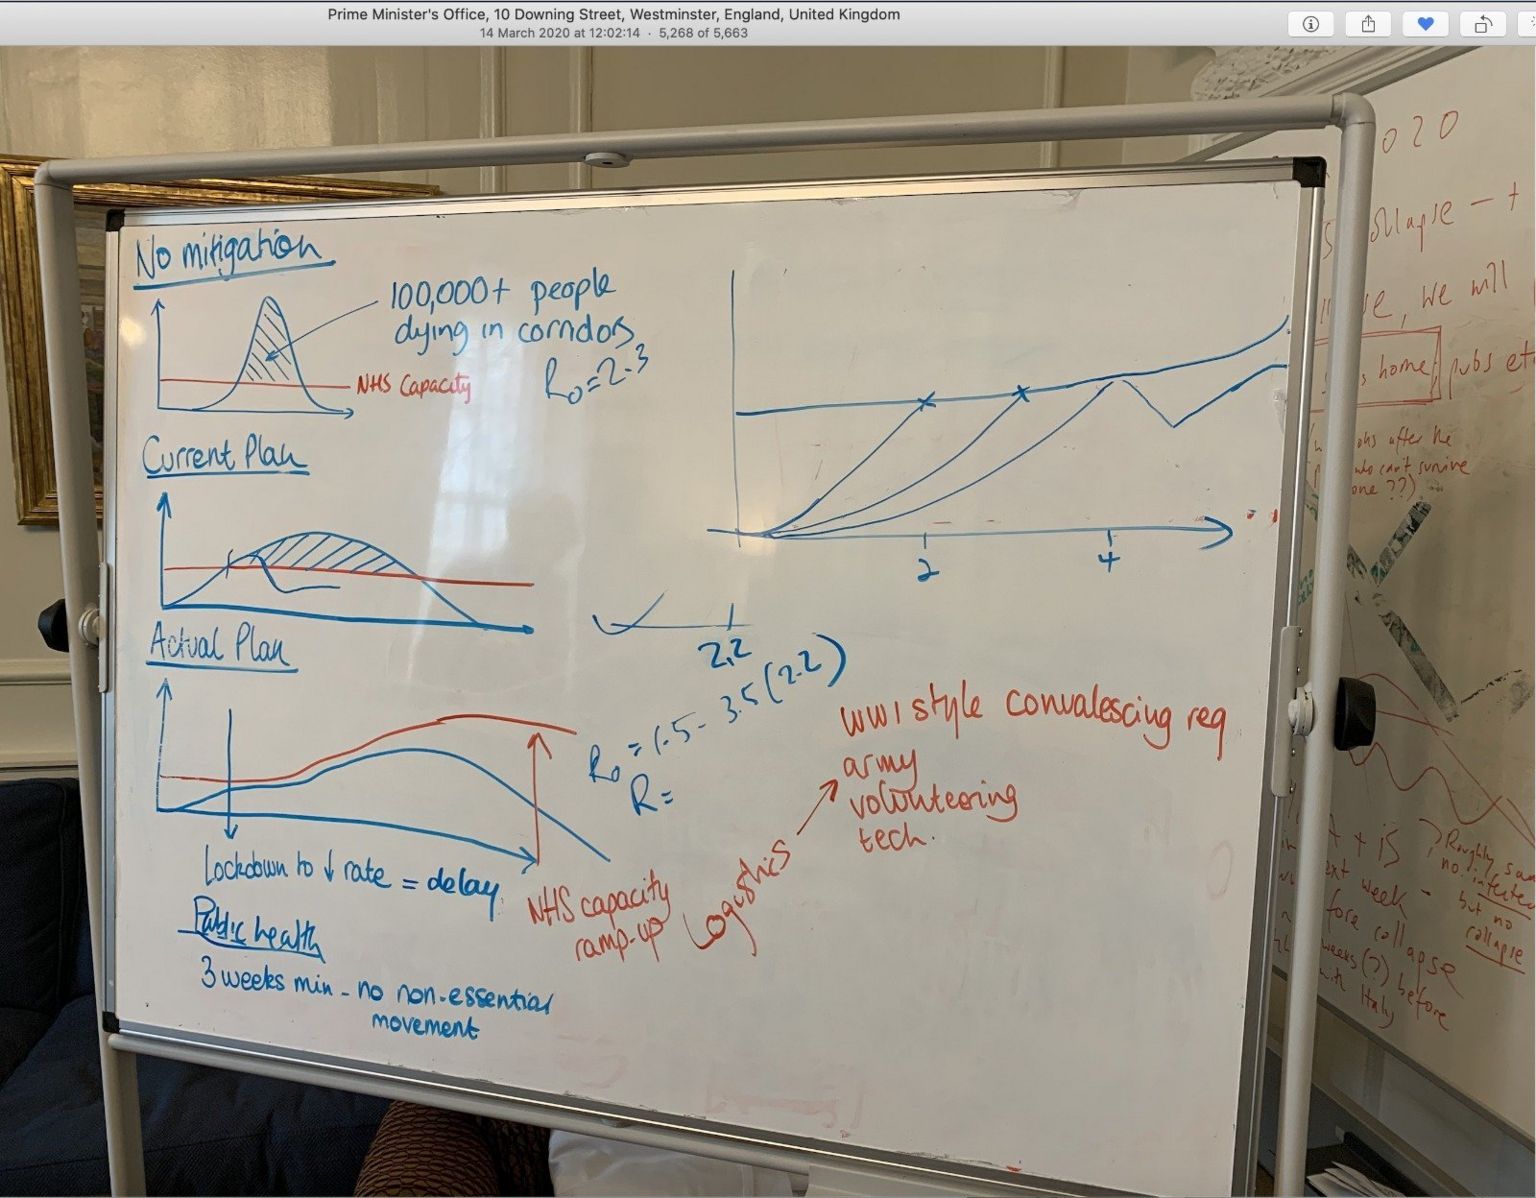 Prime Minister's Office, 10 Downing Street, Westminster, England, United Kingdom
14 March 2020 at 12:02:14 · 5,268 of 5,663
No mitigation
100,000+ people
dying in corridors
R₀=2.3
NHS Capacity
Current Plan
Actual Plan
2
4
2.2
R₀ = 1.5 - 3.5 (2.2)
R =
Lockdown to ↓ rate = delay
NHS capacity
ramp-up
Logistics
WW1 style convalescing req
army
volunteering
tech.
Public health
3 weeks min - no non-essential
movement
020
ollapse - +
se, we will
home, pubs et
after the
who can't survive
one ??)
A + is
ext week -
fore collapse
weeks (?) before
with Italy
? Roughly sam
no. infected
but no
collapse